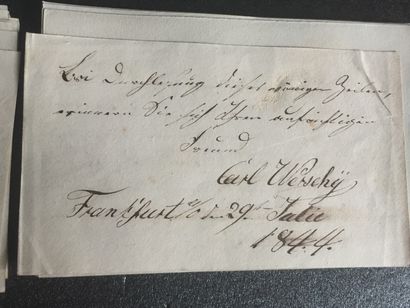 Bei Durchlesung dieser wenigen Zeilen,
erinnern Sie sich Ihren aufrichtigen
Freund
Carl
Frankfurt a/o den 29ten Julie
1844.